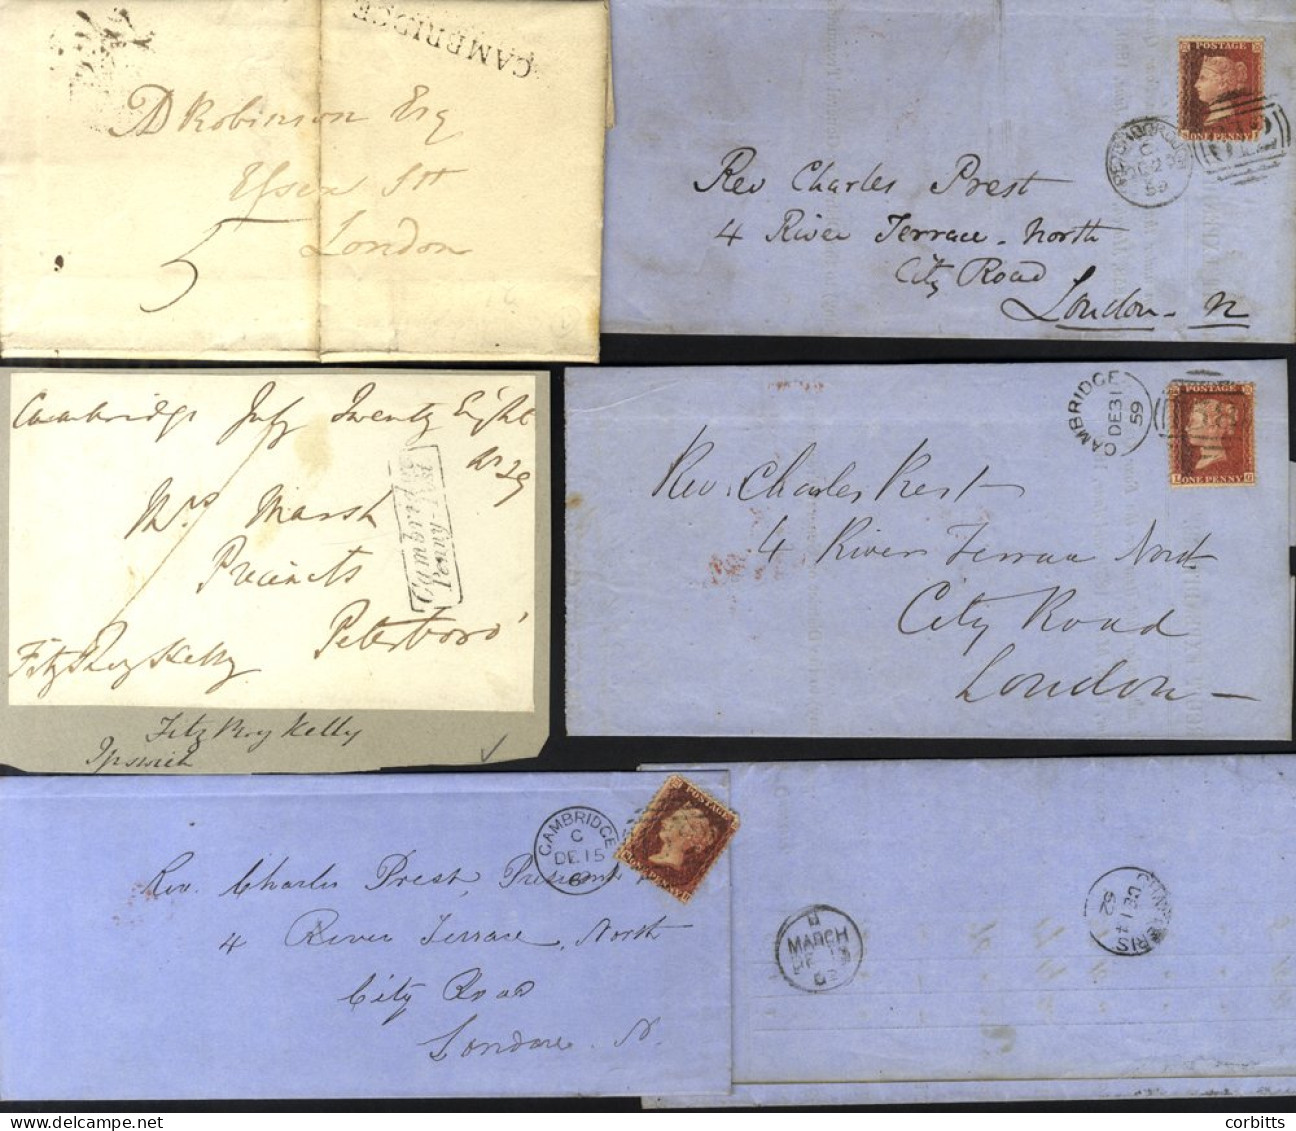 CAMBRIDGE
D Robinson Esq
Essex Stt
London
5
POSTAGE
ONE PENNY
PETERBOROUGH
C
59
612
Rev Charles Prest
4 River Terrace - North
City Road
London - N
Cambridge July Twenty Eight
Mrs Marsh
Precincts
Peterboro'
FitzRoy Kelly
Cambridge
Penny Post
FitzRoy Kelly
Ipswich
CAMBRIDGE
DE 31
59
POSTAGE
L ONE PENNY G
Rev. Charles Prest
4 River Terrace North
City Road
London
CAMBRIDGE
C
DE 15
POSTAGE
ONE PENNY
Rev. Charles Prest, President
4 River Terrace, North
City Road
London. N.
MARCH
62
DE 14
52
corbitts